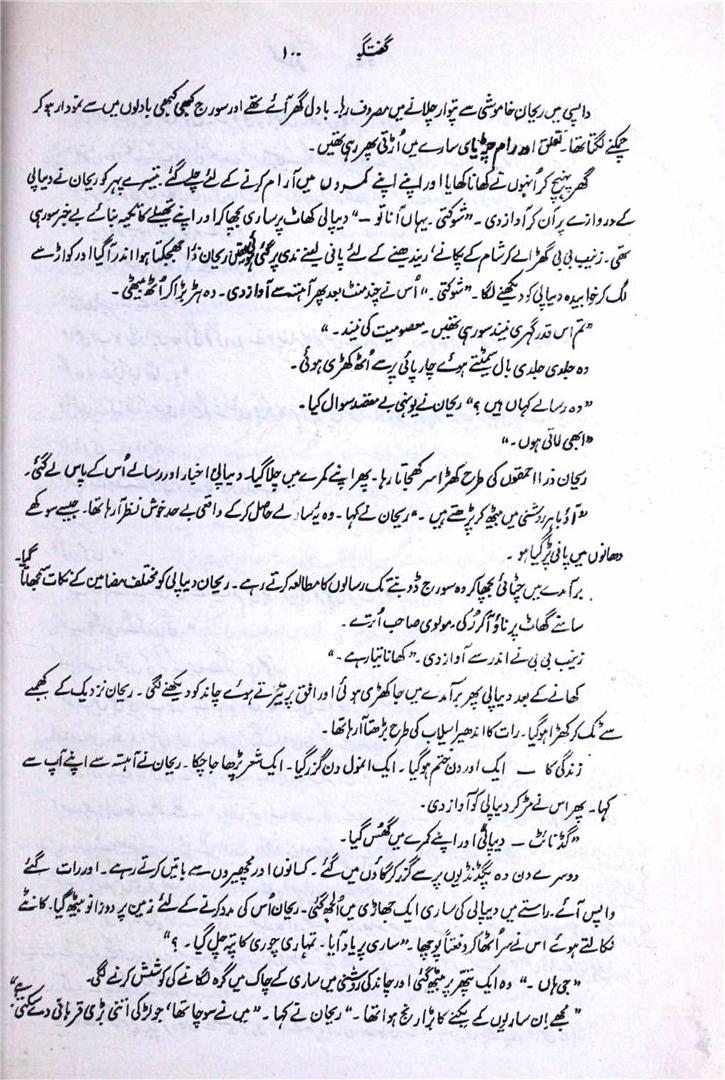 گفتگو ۱۰۰
واپسی میں ریحان خاموشی سے پتوار چلانے میں مصروف رہا۔ بادل گھر آئے تھے اور سورج کبھی کبھی بادلوں میں سے نمودار ہو کر
چمکنے لگتا تھا۔ تعلق اور رام چڑیای سارے میں اُڑتی پھر رہی تھیں۔
گھر پہنچ کر اُنہوں نے کھانا کھایا اور اپنے اپنے کمروں میں آرام کرنے کے لئے چلے گئے۔ تیسرے پہر کو ریحان نے دیپالی
کے دروازے پر آن کر آواز دی۔ "شوکتی۔ یہاں آنا تو —" دیپالی کھاٹ پر ساری بچھا کر اور اپنے تھیلے کا تکیہ بنائے بے خبر سو رہی
تھی۔ زنیب بی بی گھڑا لے کر شام کے پکانے، ریندھنے کے لئے پانی لینے ندی پر گئی ہوئی تھیں ریحان ذرا جھجکتا ہوا اندر آگیا اور کواڑ سے
لگ کر خوابیدہ دیپالی کو دیکھنے لگا۔ "شوکتی۔" اُس نے چند منٹ بعد پھر آہستہ سے آواز دی۔ وہ ہڑبڑا کر اُٹھ بیٹھی۔
"تم اس قدر گہری نیند سو رہی تھیں۔ معصومیت کی نیند۔"
وہ جلدی جلدی بال سمیٹتے ہوئے چارپائی پر سے اُٹھ کھڑی ہوئی۔
"وہ رسالے کہاں ہیں؟" ریحان نے یونہی بے مقصد سوال کیا۔
"ابھی لاتی ہوں۔"
ریحان ذرا احمقوں کی طرح کھڑا سر کھجاتا رہا۔ پھر اپنے کمرے میں چلا گیا۔ دیپالی اخبار اور رسالے اُس کے پاس لے گئی۔
"آؤ باہر روشنی میں بیٹھ کر پڑھتے ہیں۔" ریحان نے کہا۔ وہ یہ رسالے حاصل کر کے واقعی بے حد خوش نظر آ رہا تھا۔ جیسے سوکھے
دھانوں میں پانی پڑ گیا ہو۔
برآمدے میں چٹائی بچھا کر وہ سورج ڈوبنے تک رسالوں کا مطالعہ کرتے رہے۔ ریحان دیپالی کو مختلف مضامین کے نکات سمجھاتا گیا۔
سامنے گھاٹ پر ناؤ آ کر رُکی، مولوی صاحب اُترے۔
زنیب بی بی نے اندر سے آواز دی۔ "کھانا تیار ہے۔"
کھانے کے بعد دیپالی پھر برآمدے میں جا کھڑی ہوئی اور افق پر تیرتے ہوئے چاند کو دیکھنے لگی۔ ریحان نزدیک کے کھمبے
سے ٹک کر کھڑا ہو گیا۔ رات کا اندھیرا سیلاب کی طرح بڑھتا آ رہا تھا۔
زندگی کا — ایک اور دن ختم ہو گیا۔ ایک انمول دن گزر گیا۔ ایک شعر پڑھا جا چکا۔ ریحان نے آہستہ سے اپنے آپ سے
کہا۔ پھر اس نے مڑ کر دیپالی کو آواز دی۔
"گڈ نائٹ — دیپالی" اور اپنے کمرے میں گھُس گیا۔
دوسرے دن وہ پگڈنڈیوں پر سے گزر کر گاؤں میں گئے۔ کسانوں اور مچھیروں سے باتیں کرتے رہے۔ اور رات گئے
واپس آئے۔ راستے میں دیپالی کی ساری ایک جھاڑی میں اُلجھ گئی۔ ریحان اُس کی مدد کرنے کے لئے زمین پر دوزانو بیٹھ گیا۔ کانٹے
نکالتے ہوئے اس نے سر اُٹھا کر دفعتاً پوچھا۔ "ساری پر یاد آیا۔ تمہاری چوری کا پتہ چل گیا۔ ؟"
"جی ہاں۔" وہ ایک پتھر پر بیٹھ گئی اور چاند کی روشنی میں ساری کے چاک میں گرہ لگانے کی کوشش کرنے لگی۔
"مجھے اِن ساریوں کے بکنے کا بڑا رنج ہوا تھا۔" ریحان نے کہا۔ "میں نے سوچا تھا، جو لڑکی اتنی بڑی قربانی دے سکتی ہے"